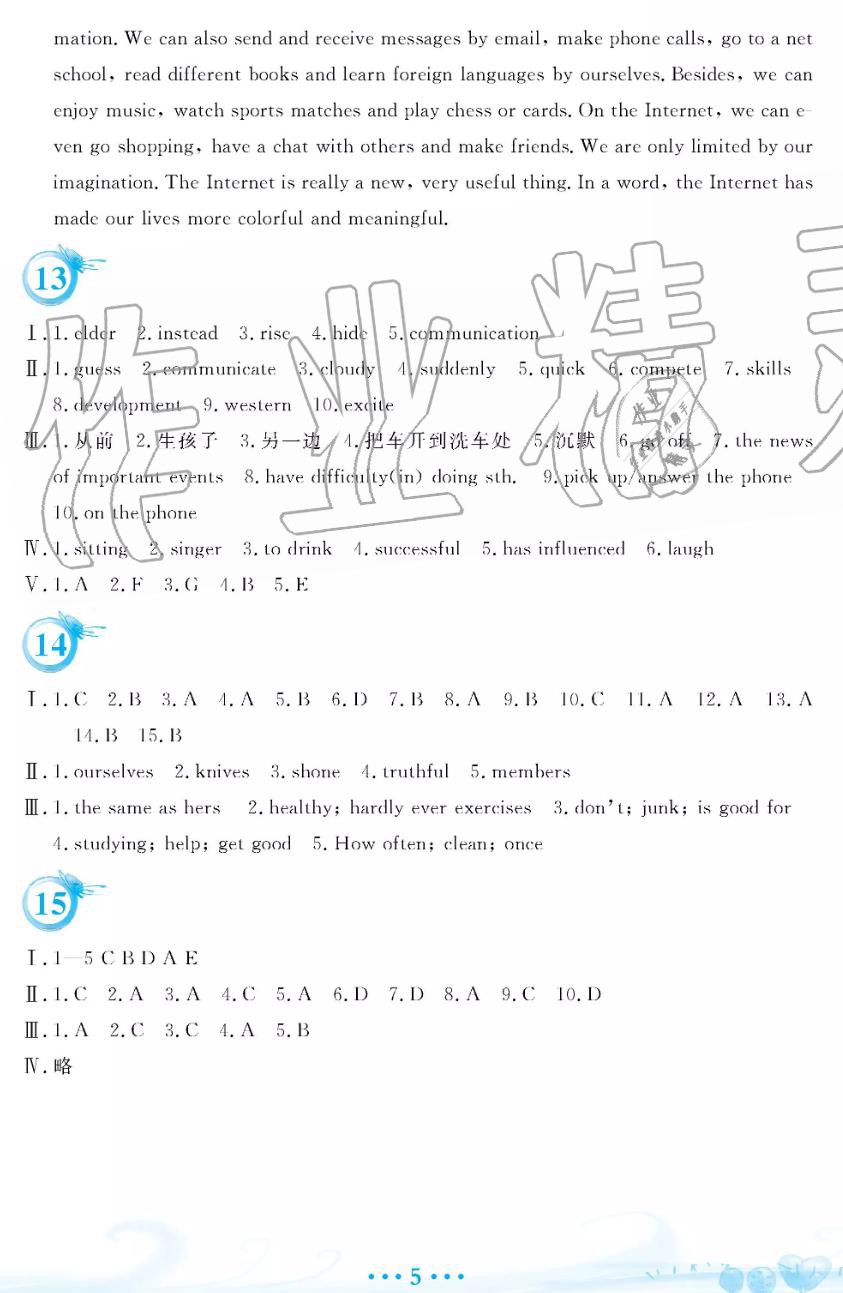 mation. We can also send and receive messages by email, make phone calls, go to a net
school, read different books and learn foreign languages by ourselves. Besides, we can
enjoy music, watch sports matches and play chess or cards. On the Internet, we can e-
ven go shopping, have a chat with others and make friends. We are only limited by our
imagination. The Internet is really a new, very useful thing. In a word, the Internet has
made our lives more colorful and meaningful.
13
Ⅰ. 1. elder 2. instead 3. rise 4. hide 5. communication
Ⅱ. 1. guess 2. communicate 3. cloudy 4. suddenly 5. quick 6. compete 7. skills
8. development 9. western 10. excite
Ⅲ. 1. 从前 2. 生孩子 3. 另一边 4. 把车开到洗车处 5. 沉默 6. go off 7. the news
of important events 8. have difficulty(in) doing sth. 9. pick up/answer the phone
10. on the phone
Ⅳ. 1. sitting 2. singer 3. to drink 4. successful 5. has influenced 6. laugh
Ⅴ. 1. A 2. F 3. G 4. B 5. E
14
Ⅰ. 1. C 2. B 3. A 4. A 5. B 6. D 7. B 8. A 9. B 10. C 11. A 12. A 13. A
14. B 15. B
Ⅱ. 1. ourselves 2. knives 3. shone 4. truthful 5. members
Ⅲ. 1. the same as hers 2. healthy; hardly ever exercises 3. don't; junk; is good for
4. studying; help; get good 5. How often; clean; once
15
Ⅰ. 1—5 C B D A E
Ⅱ. 1. C 2. A 3. A 4. C 5. A 6. D 7. D 8. A 9. C 10. D
Ⅲ. 1. A 2. C 3. C 4. A 5. B
Ⅳ. 略
作业精灵
5